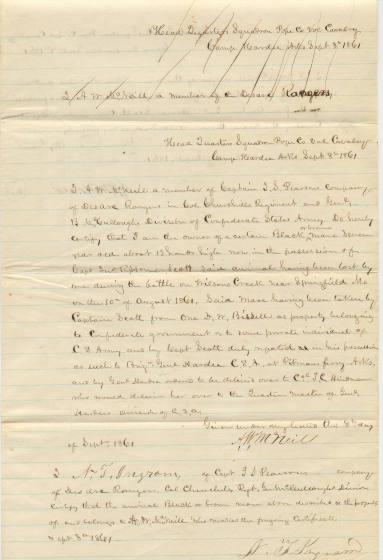 Head Quarters Squadron Pope Co Vol Cavalry
Camp Hardee Arks Sept 8th 1861
I A. W. McNeill a member of the Desarc Rangers
Head Quarters Squadron Pope Co Vol Cavalry
Camp Hardee Arks Sept 8th 1861
I A. W. McNeill a member of Captain T. S. Pearsons company
of Desarc Rangers in Col Churchills Regiment and Genl.
B McCulloughs Division of Confederate States Army Do hereby
certify that I am the owner of a certain Black or brown Mare Seven
years old about 15 hands high now in the possession of
Capt Scott said animal having been lost by
me during the battle on Wilsons Creek near Springfield Mo
on the 10th of August 1861, Said Mare having been taken by
Captain Scott from one D. W. Bissell as property belonging
to Confederate government or to some private individual of
C S Army, and by Capt Scott duly reported as in his possession
as such to Brigr Genl Hardee C. S. A. at Pitmans ferry Arks,
and by Genl Hardee ordered to be delivd over to Col T. C. Hindman
who ordered deliver her over to the Quarter Master of Genl
Hardees division of C S A,
Given under my hand this 8th day
of Septr 1861
A. W. McNeill
I N. T. Ingram, of Capt T S Pearsons company
of Des Arc Rangers, Col Churchills Rgt, Genl McCulloughs Division
Certify that the animal Black or brown mare above described is the property
of and belongs to A. W. McNeill who makes the foregoing Certificate
Sept 8th 1861
N. T. Ingram